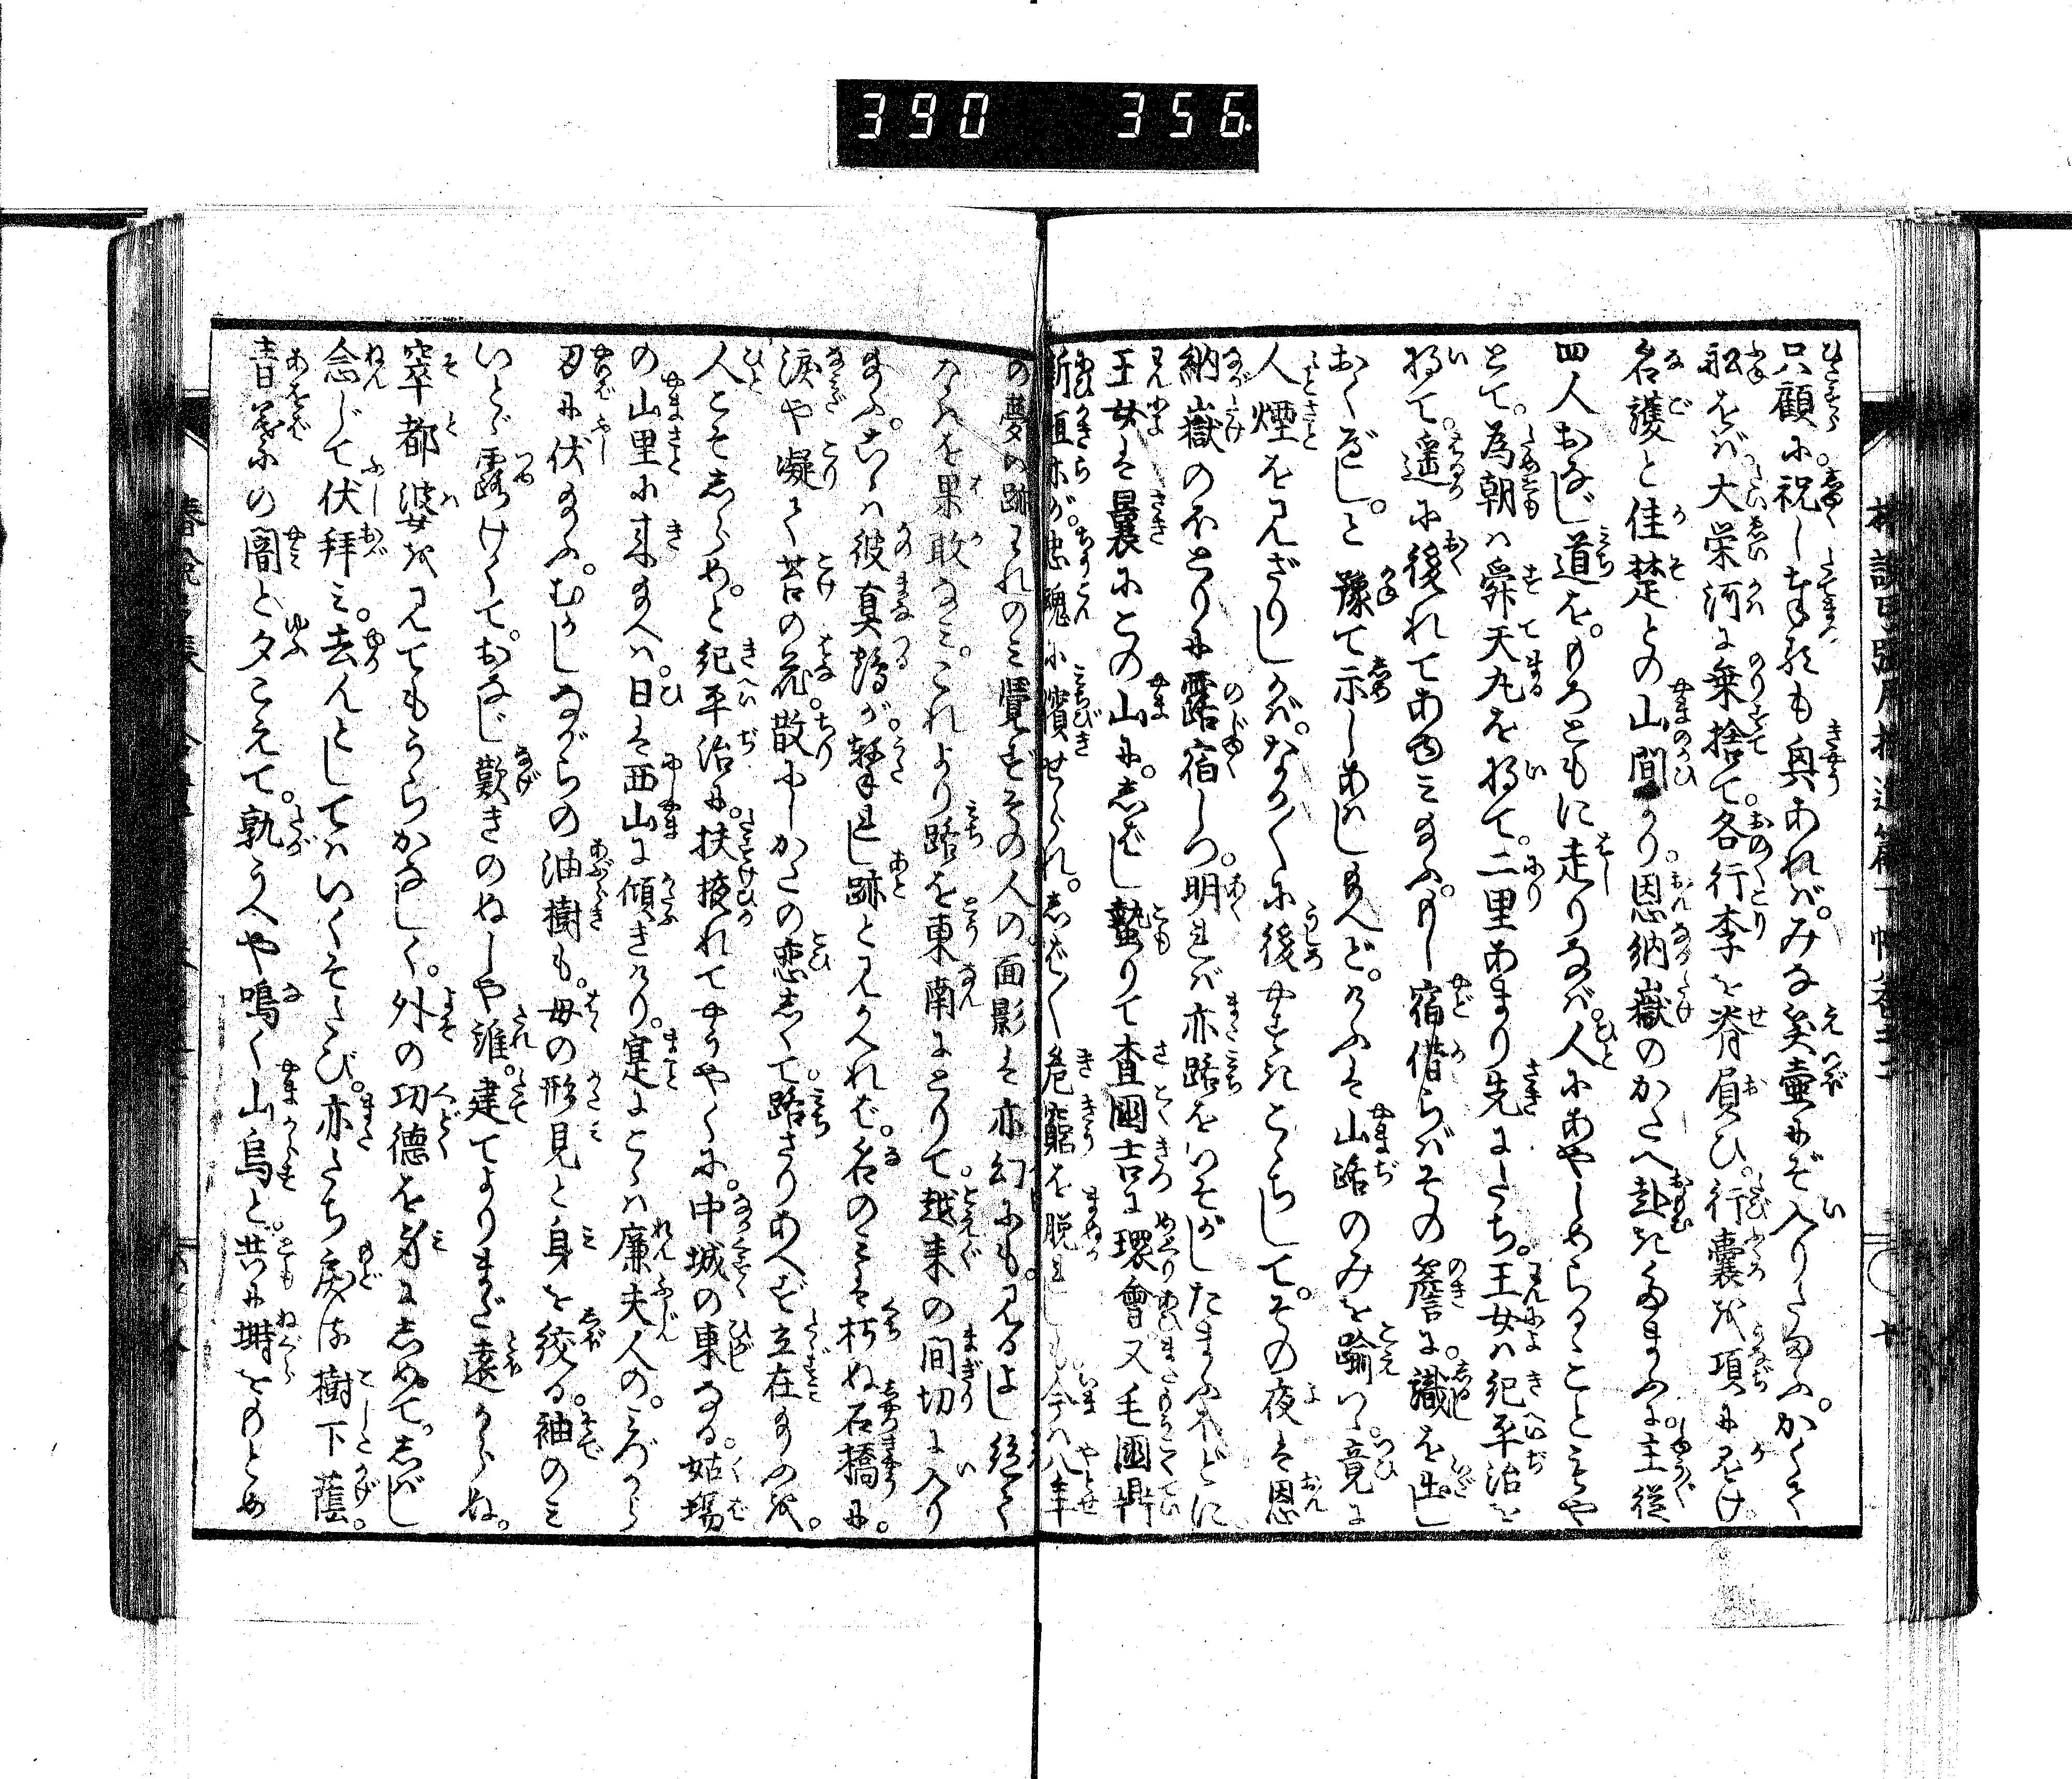 390 356
只顧に祝し奉るも興あれば。みな笑壷にぞ入りたまふ。かくて
船をば大栄河に乗捨て。各行李を脊負ひ。行嚢を項にかけ。
名護と佳楚との山間より。恩納嶽のかたへ赴き給ふに。主従
四人おなじ道を。もろともに走りなば。人にあやしめらるゝこともや
とて。為朝は舜天丸を将て。二里あまり先にたち。王女は紀平治を
将て。遥に後れてあゆみ給ふ。もし宿借らばその簷に。識を出し
おくべし。と豫て示しあはし給へど。けふは山路のみを踰つゝ。竟に
人煙を見ざりしかば。なか〳〵に後やすきこゝちして。その夜は恩
納嶽のほとりに露宿しつ。明れば亦路をいそがしたまふほどに
王女は曩にこの山に。しばし蟄りて査國吉に環會又毛國鼎
新垣等が。忠魂に濱せられ。しば〳〵危窮を脱れしも今は八年
の夢の跡それのみ覺てその人の面影は亦幻にも。見るよし絶て
なきを果敢なみ。これより路を東南にとりて。越来の間切に入り
給ふ。こゝは彼真鶴が。撃れし跡と見かへれば。名のみは朽ぬ石橋に。
涙や凝て苔の花。散にしかたの恋しくて。路さりあへず立在給ふを。
人こそしらめ。と紀平治に。扶掖れてやうやくに。中城の東なる。姑場
の山里に来給へば。日は西山に傾きけり。寔にこゝは廉夫人の。みづから
刃に伏給ふ。むかしながらの油樹も。母の形見と身を絞る。袖のみ
いとゞ露けくて。おなじ歎きのぬしや誰。建てよりまだ遠からぬ。
窣都婆を見てもうらかなしく。外の功徳を身にしめて。しばし
念じて伏拝み。去んとしてはいくそたび。亦たち戻る樹下蔭。
青葉の闇と夕こえて。孰うへや鳴く山烏と。共に塒をもとめ